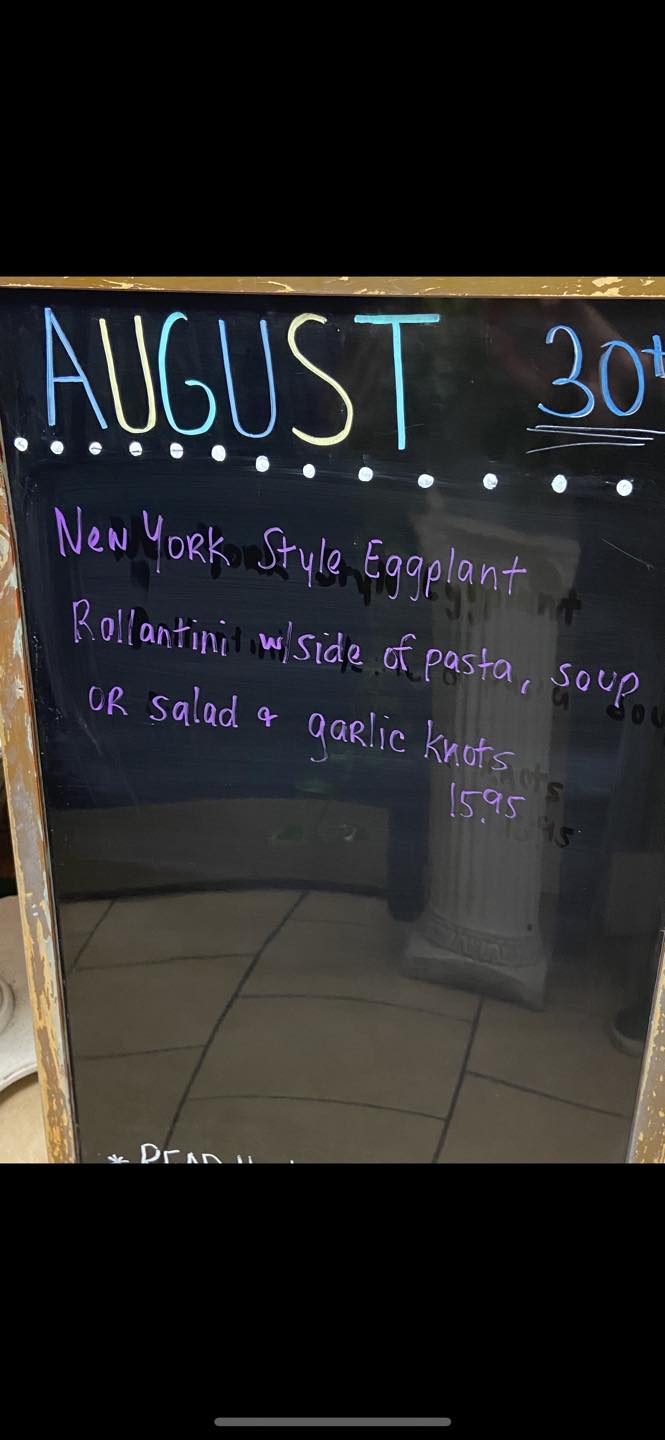 AUGUST 30t
New York Style Eggplant
Rollantini w/side of pasta, soup
OR salad & garlic knots
15.95
* READ